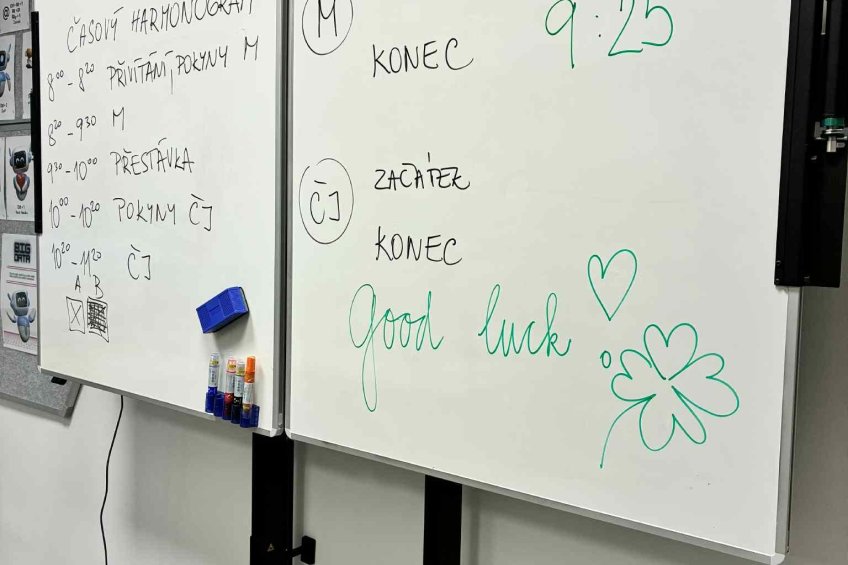 ČASOVÝ HARMONOGRAM
8⁰⁰ - 8²⁰ PŘIVÍTÁNÍ, POKYNY M
8²⁰ - 9³⁰ M
9³⁰ - 10⁰⁰ PŘESTÁVKA
10⁰⁰ - 10²⁰ POKYNY ČJ
10²⁰ - 11²⁰ ČJ
A B
M 9:25
KONEC
ČJ ZAČÁTEK
KONEC
good luck
BIG DATA